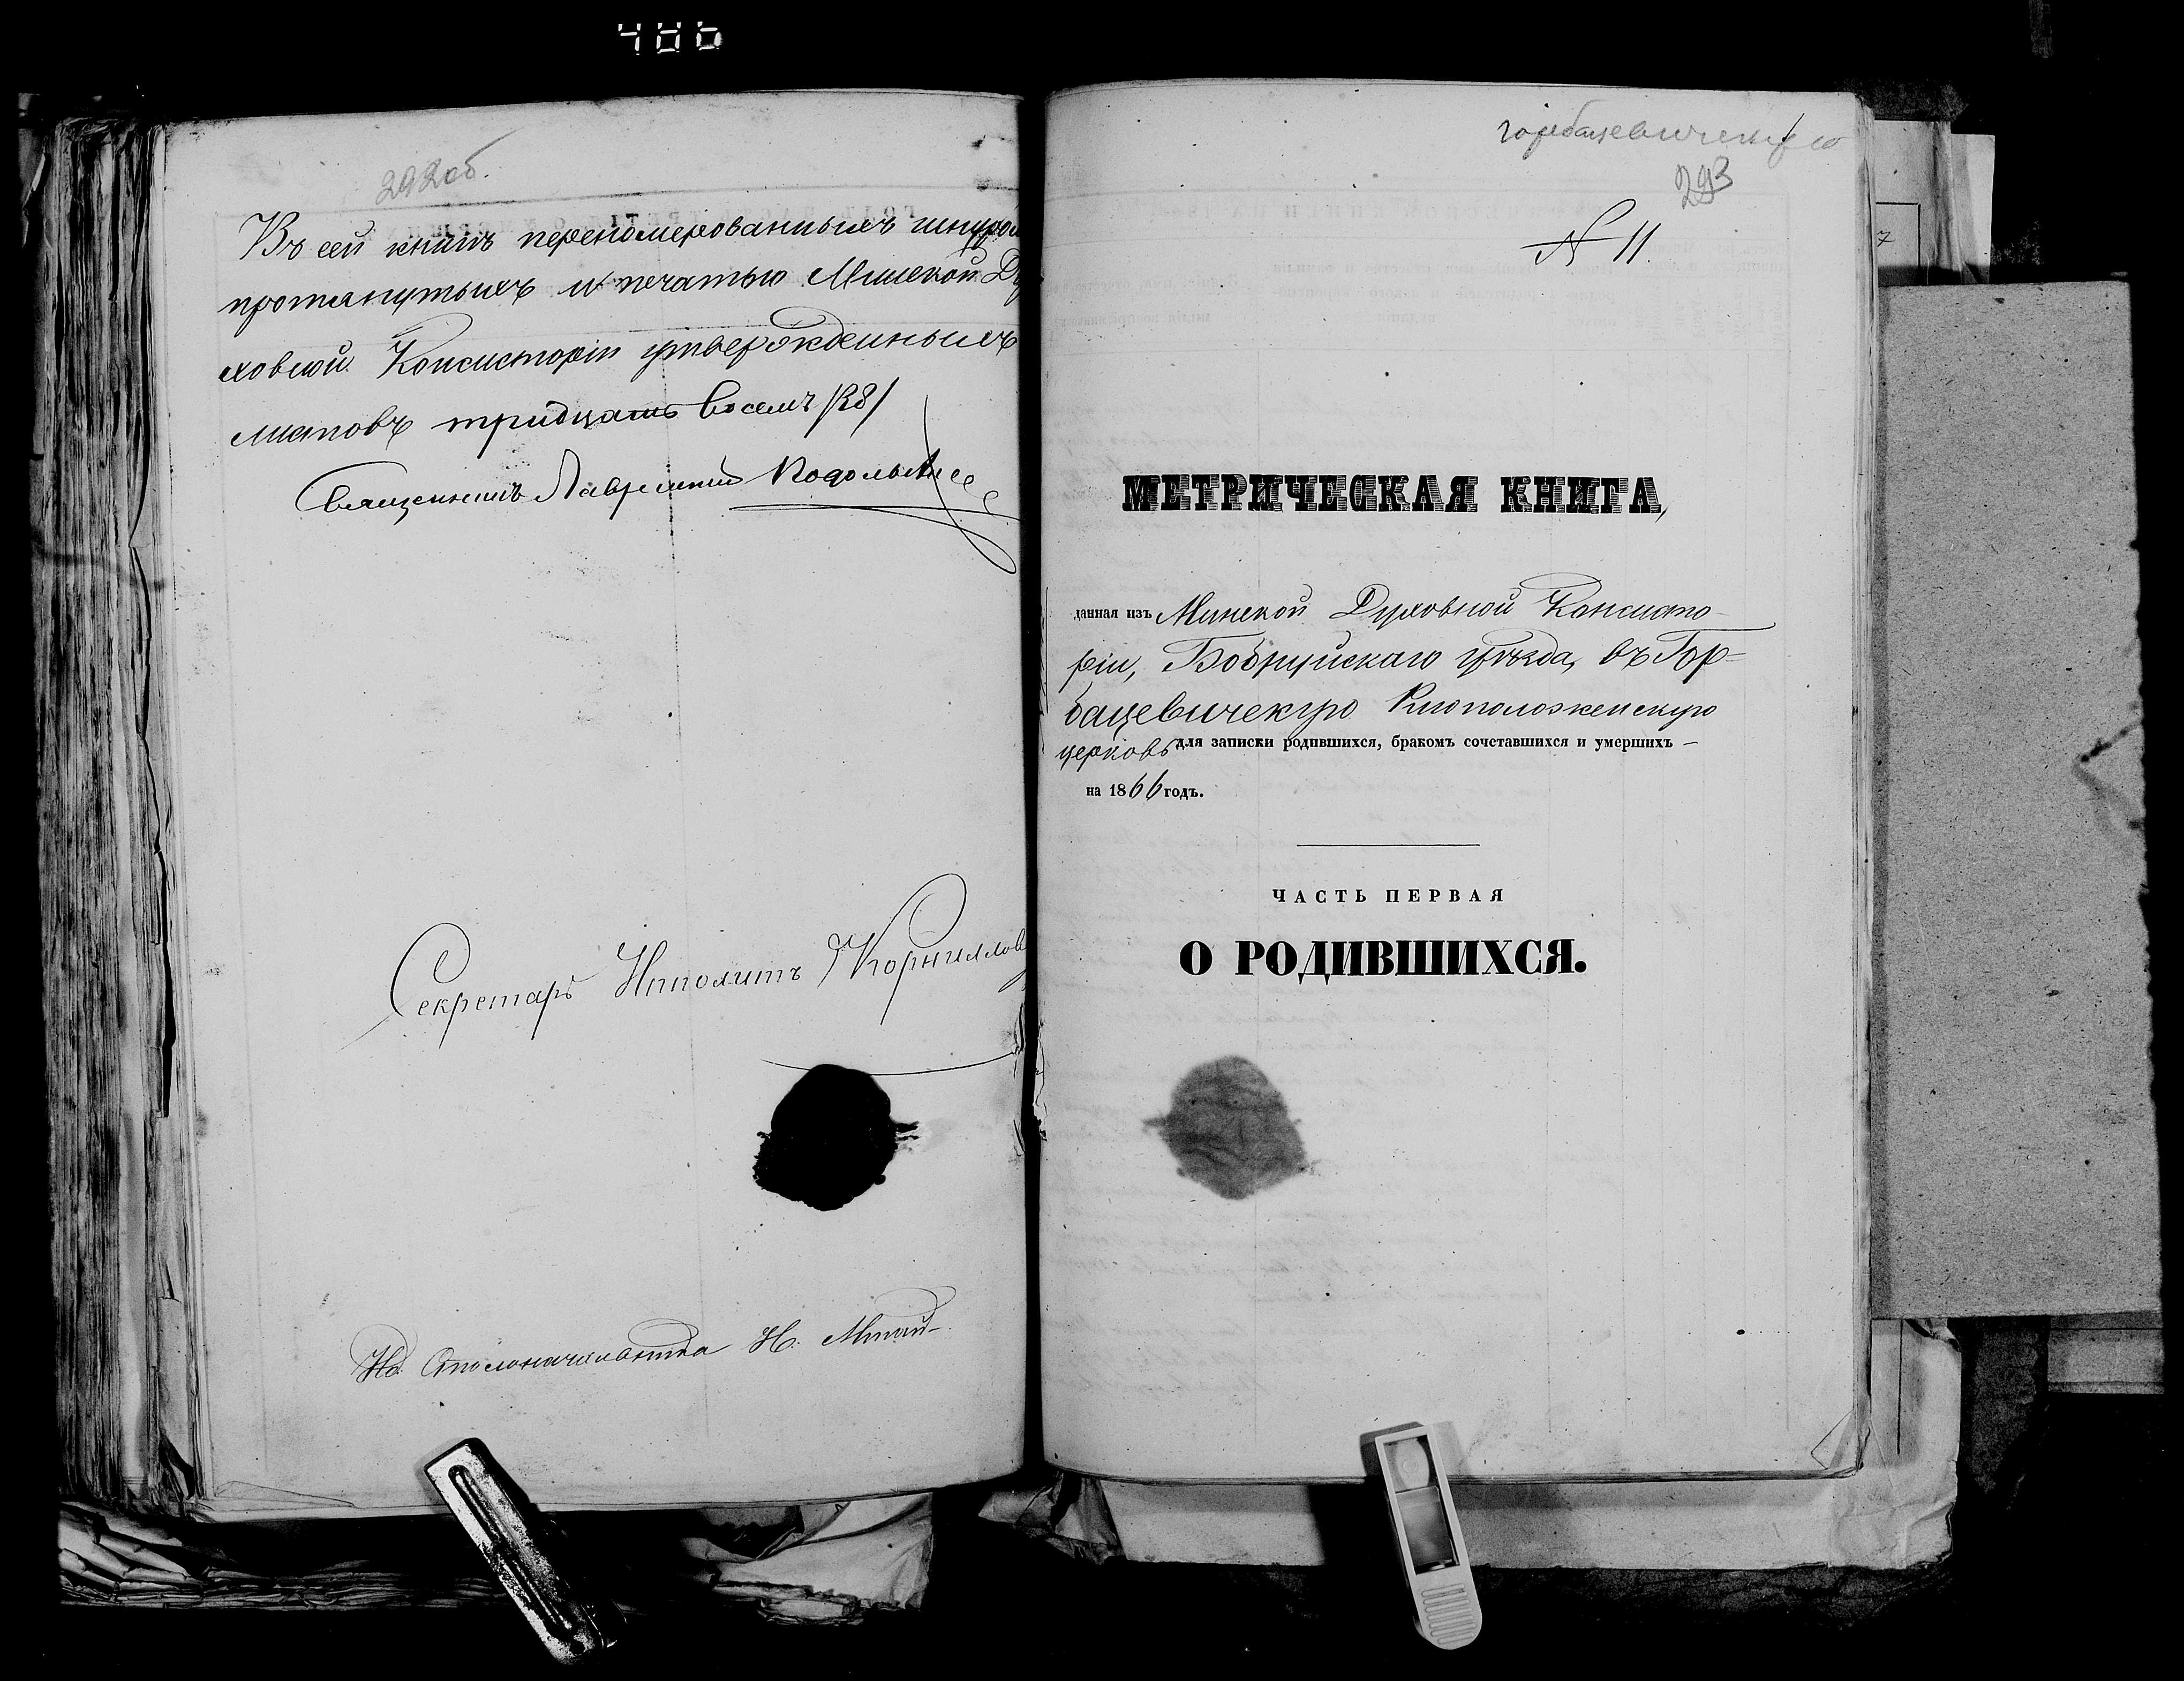 406
292 об.
Въ сей книгѣ перенумерованныхъ шнуром
протянутыхъ и печатью Минской Ду
ховной Консисторіи утвержденныхъ
листовъ тридцать восемь /38/
Священникъ Лаврентій
Секретарь Ипполитъ Корниллов
Столоначальника Н.
горбацевическую
293
№ 11.
МЕТРИЧЕСКАЯ КНИГА,
данная изъ Минской Духовной Консисто-
ріи, Бобруйскаго уѣзда, въ Гор-
бацевическую Ризоположенскую
церковь для записки родившихся, бракомъ сочетавшихся и умершихъ —
на 1866 годъ.
ЧАСТЬ ПЕРВАЯ
О РОДИВШИХСЯ.
7